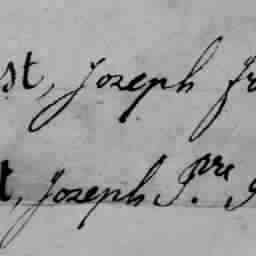 st, Joseph fr
t, Joseph P.re